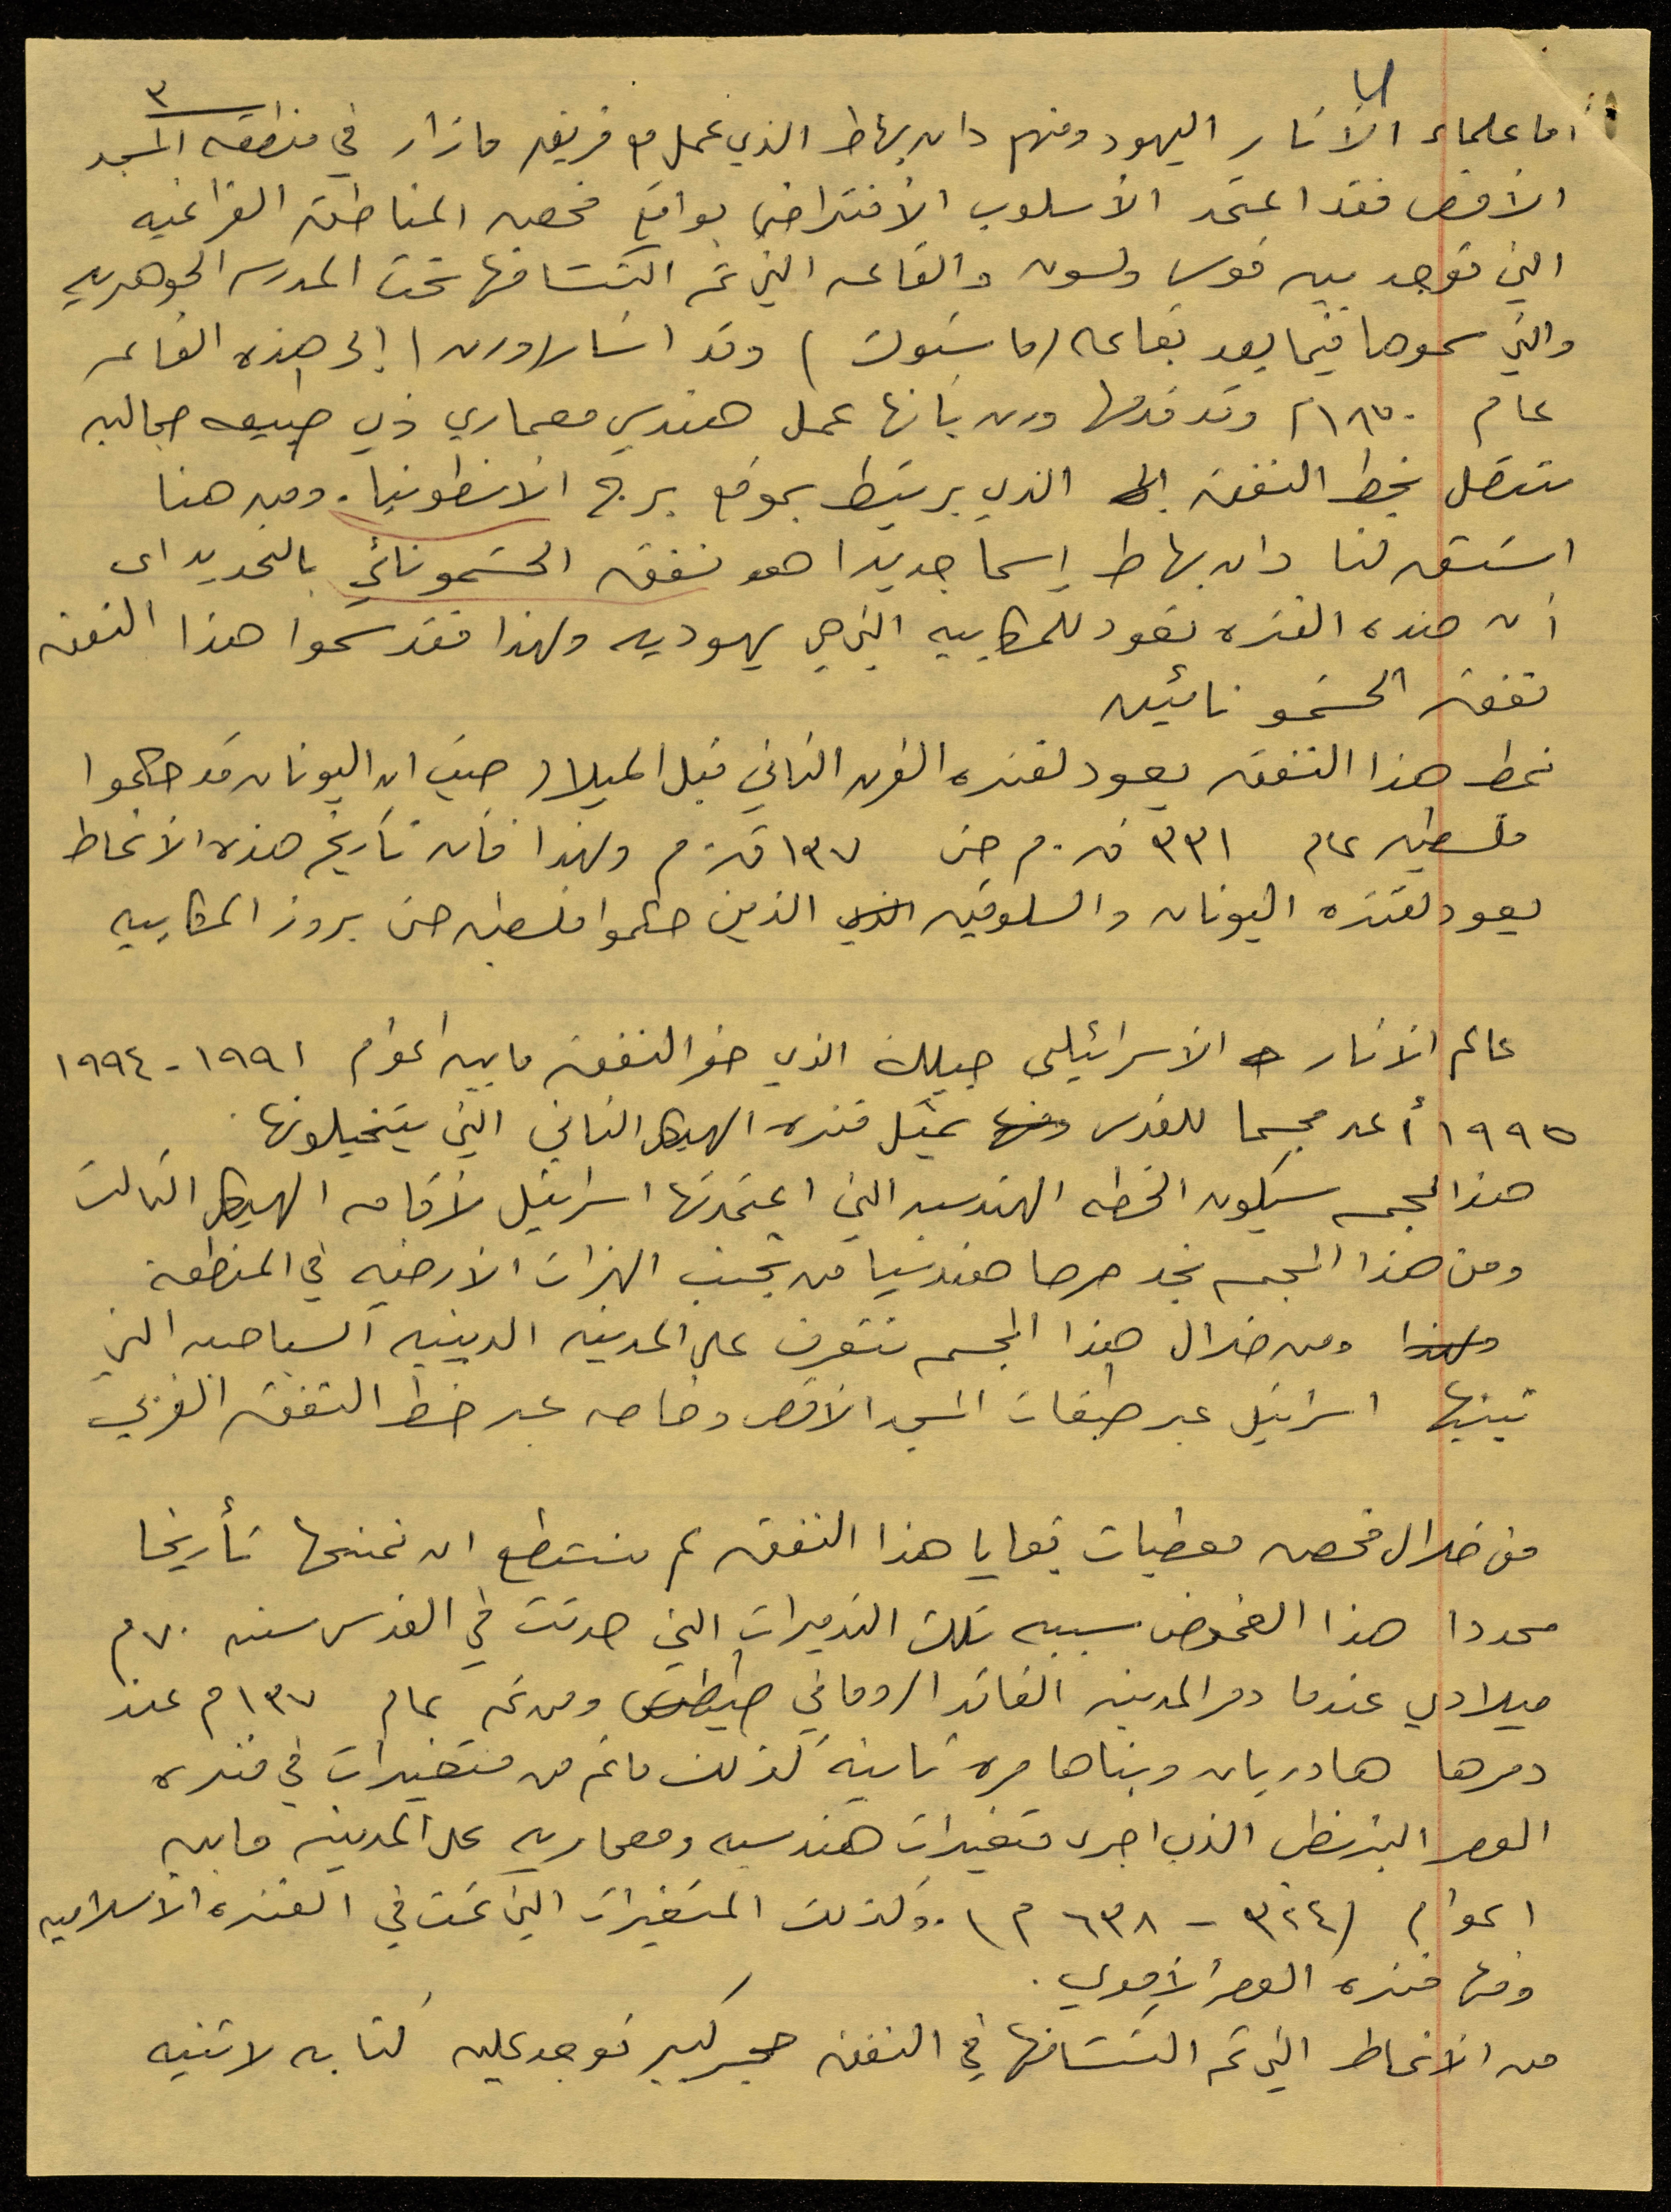 ٣
اما علماء الأثار اليهود ومنهم دان بهاط الذي عمل مع فريق مازار في منطقه المسجد
الأقصى فقد اعتمد الأسلوب الأفتراضي بواقع فحص المناطق الفراغيه
التي توجد بين قوس ولسون والقاعه التي تم اكتشافها تحت المدرسه الجوهريه
والتي سموها فيما بعد بقاعه (ماسنوت) وقد اشار (ورن) إلى هذه القاعه
عام ١٨٣٠م وقد قدمها ورن بأنها عمل هندسي معماري ذي طبيعه جماليه
تتصل بخط النفق الذي يرتبط بموقع برج الأنطونيا. ومن هنا
اشتق لنا دان بهاط إسما جديدا هو نفق الحشمونائي بالتحديد اى
أن هذه الفتره تعود للمكابيين التي هي يهوديه ولهذا فقد سموا هذا النفق
نفق الحشمونائيين
نمط هذا النفق يعود لفتره القرن الثاني قبل الميلاد حيث ان اليونان قد حكموا
فلسطين عام ٣٣١ ق.م حتى ١٣٧ ق.م ولهذا فأن تأريخ هذه الأنماط
يعود لفتره اليونان والسلوقين الذين حكموا فلسطين حتى بروز المكابيين
عالم الأثار الأسرائيلي جيبلك الذي حفر النفق ما بين اعوام ١٩٩١-١٩٩٤
١٩٩٥ أعد مجسما للقدس يمثل فتره الهيكل الثاني التي يتخيلونها.
هذا المجسم سيكون الخطه الهندسيه التي اعتمدتها اسرائيل لأقامه الهيكل الثالث
ومن هذا المجسم نجد حرصا هندسيا من تجنب الهزات الأرضيه في المنطقة
ومن خلال هذا المجسم نتعرف على المدينه الدينيه السياحيه التي
تبنيها اسرائيل عبر طبقات المسجد الأقصى وخاصه عبر خط النفق الغربي
من خلال فحص معطيات بقايا هذا النفق لم نستطع ان نمنحها تأريخا
محددا هذا الغموض سببه تلك التدميرات التي حدثت في القدس سنه ٧٠م
ميلادي عندما دمر المدينه القائد الروماني طيطس ومن ثم عام ١٣٧م عند
دمرها هادريان وبناها مره ثانية كذلك ما تم من متغيرات في فتره
العصر البيزنطي الذي اجرى متغيرات هندسيه ومعماريه على المدينه ما بين
اعوام (٣٢٤ - ٦٣٨ م). وكذلك المتغيرات التي تمت في الفتره الأسلاميه
ومنها فتره العصر الأموي.
من الأنماط التي تم اكتشافها في النفق حجر كبير توجد عليه كتابه لاتنيه